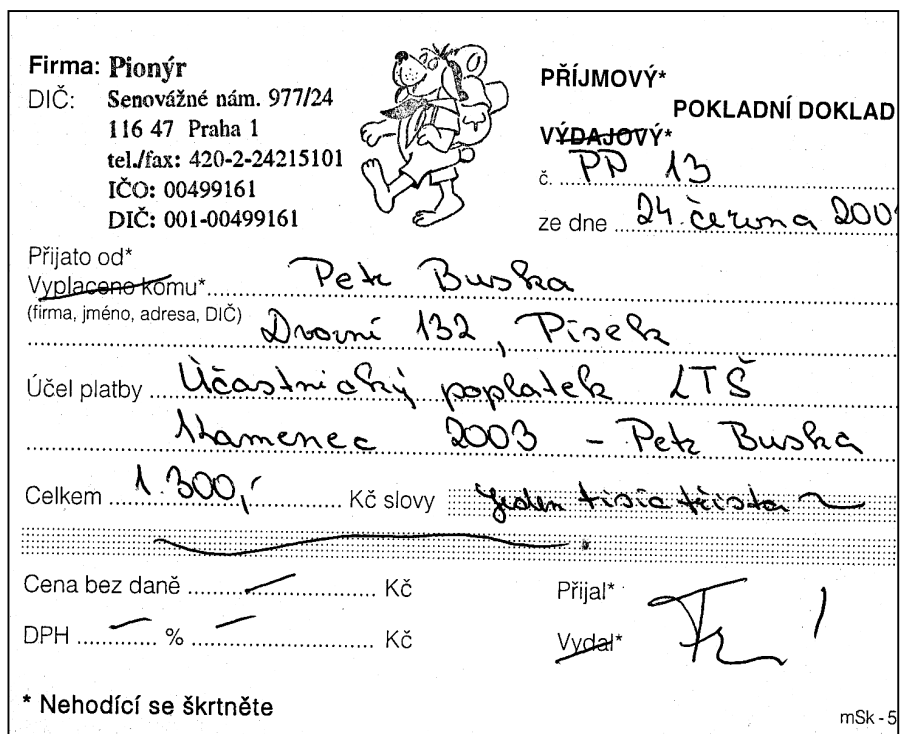 Firma: Pionýr
DIČ: Senovážné nám. 977/24
116 47 Praha 1
tel./fax: 420-2-24215101
IČO: 00499161
DIČ: 001-00499161
PŘÍJMOVÝ*
POKLADNÍ DOKLAD
VÝDAJOVÝ*
č. PP 13
ze dne 24. června 200
Přijato od*
Vyplaceno komu* Petr Buska
(firma, jméno, adresa, DIČ) Dvorní 132, Písek
Účel platby Účastnický poplatek LTŠ
Kamenec 2003 - Petr Buska
Celkem 1.300,- Kč slovy Jeden tisíc třista
Cena bez daně Kč
DPH % Kč
Přijal*
Vydal*
* Nehodící se škrtněte
mSk - 5